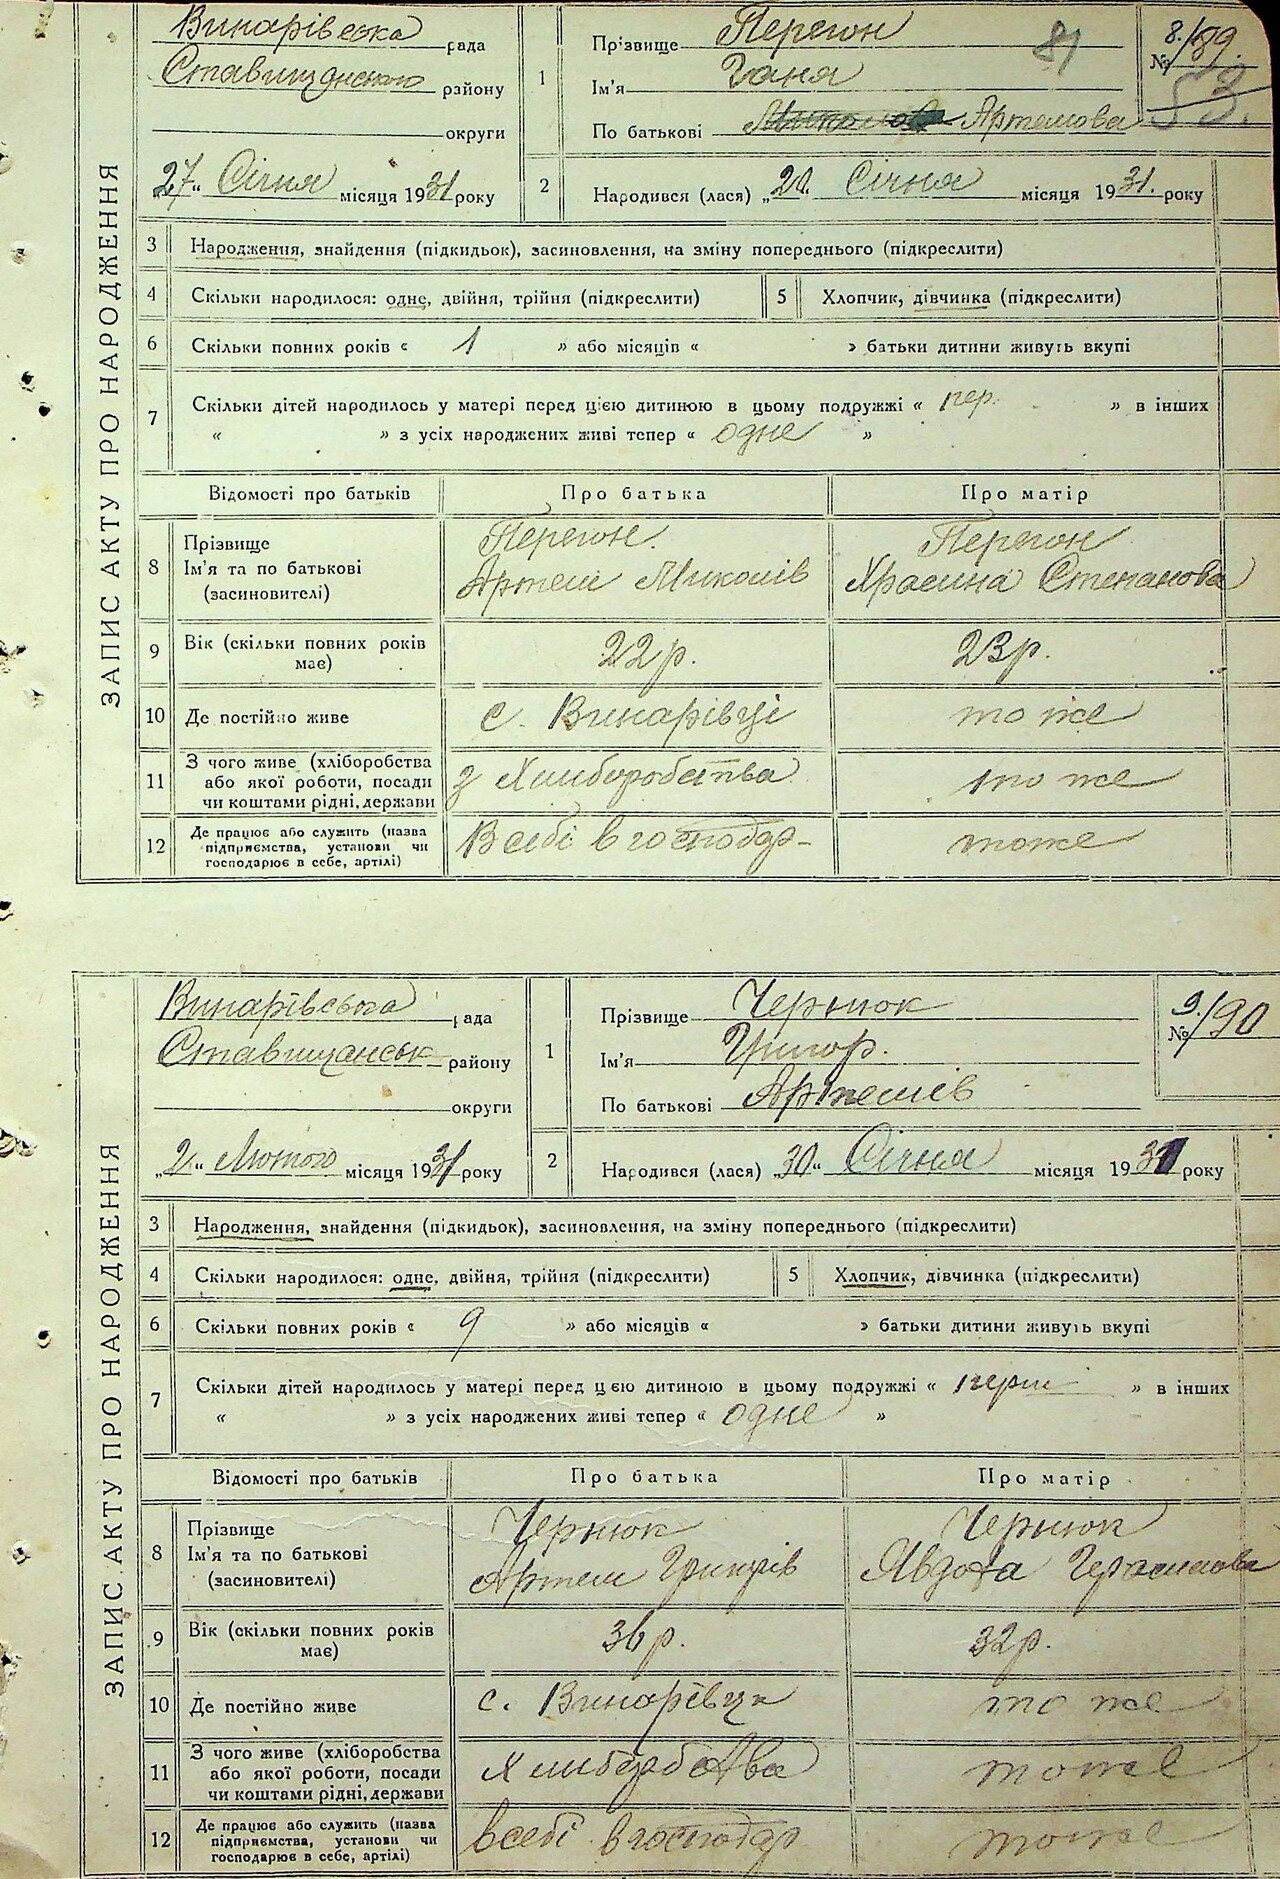 ЗАПИС АКТУ ПРО НАРОДЖЕННЯ
Винарівська рада
Ставищанського району
округи
„27" Січня місяця 1931 року
1
Прізвище Перегон
Ім'я Ганя
По батькові Миколова Артемова
81
8.
№ /89.
53.
2
Народився (лася) „20. Січня місяця 1931. року
3 Народження, знайдення (підкидьок), засиновлення, на зміну попереднього (підкреслити)
4 Скільки народилося: одне, двійня, трійня (підкреслити) 5 Хлопчик, дівчинка (підкреслити)
6 Скільки повних років « 1 » або місяців « » батьки дитини живуть вкупі
7 Скільки дітей народилось у матері перед цією дитиною в цьому подружжі « пер. » в інших
« » з усіх народжених живі тепер « одне »
Відомості про батьків Про батька Про матір
8 Прізвище Перегон. Перегон
Ім'я та по батькові Артем Миколів Степанова
(засиновителі)
9 Вік (скільки повних років має) 22 р. 23 р.
10 Де постійно живе с. Винарівці то же
11 З чого живе (хліборобства
або якої роботи, посади
чи коштами рідні, держави з Хлиборобства то же
12 Де працює або служить (назва
підприємства, установи чи
господарює в себе, артілі) В себі в господар- тоже
ЗАПИС АКТУ ПРО НАРОДЖЕННЯ
Винарівсьога рада
Ставищанськ району
округи
„2" Лютого місяця 1931 року
1
Прізвище Чернюк
Ім'я Григор.
По батькові Артемів
9.
№ /90
2
Народився (лася) „30" Січня місяця 1931 року
3 Народження, знайдення (підкидьок), засиновлення, на зміну попереднього (підкреслити)
4 Скільки народилося: одне, двійня, трійня (підкреслити) 5 Хлопчик, дівчинка (підкреслити)
6 Скільки повних років « 9 » або місяців « » батьки дитини живуть вкупі
7 Скільки дітей народилось у матері перед цією дитиною в цьому подружжі « перш » в інших
« » з усіх народжених живі тепер « одне »
Відомості про батьків Про батька Про матір
8 Прізвище Чернюк Чернюк
Ім'я та по батькові Артем Григорів Явдоха Герасимова
(засиновителі)
9 Вік (скільки повних років має) 36 р. 32 р.
10 Де постійно живе с. Винарівци то же
11 З чого живе (хліборобства
або якої роботи, посади
чи коштами рідні, держави тоже
12 Де працює або служить (назва
підприємства, установи чи
господарює в себе, артілі) всебі в господар тоже